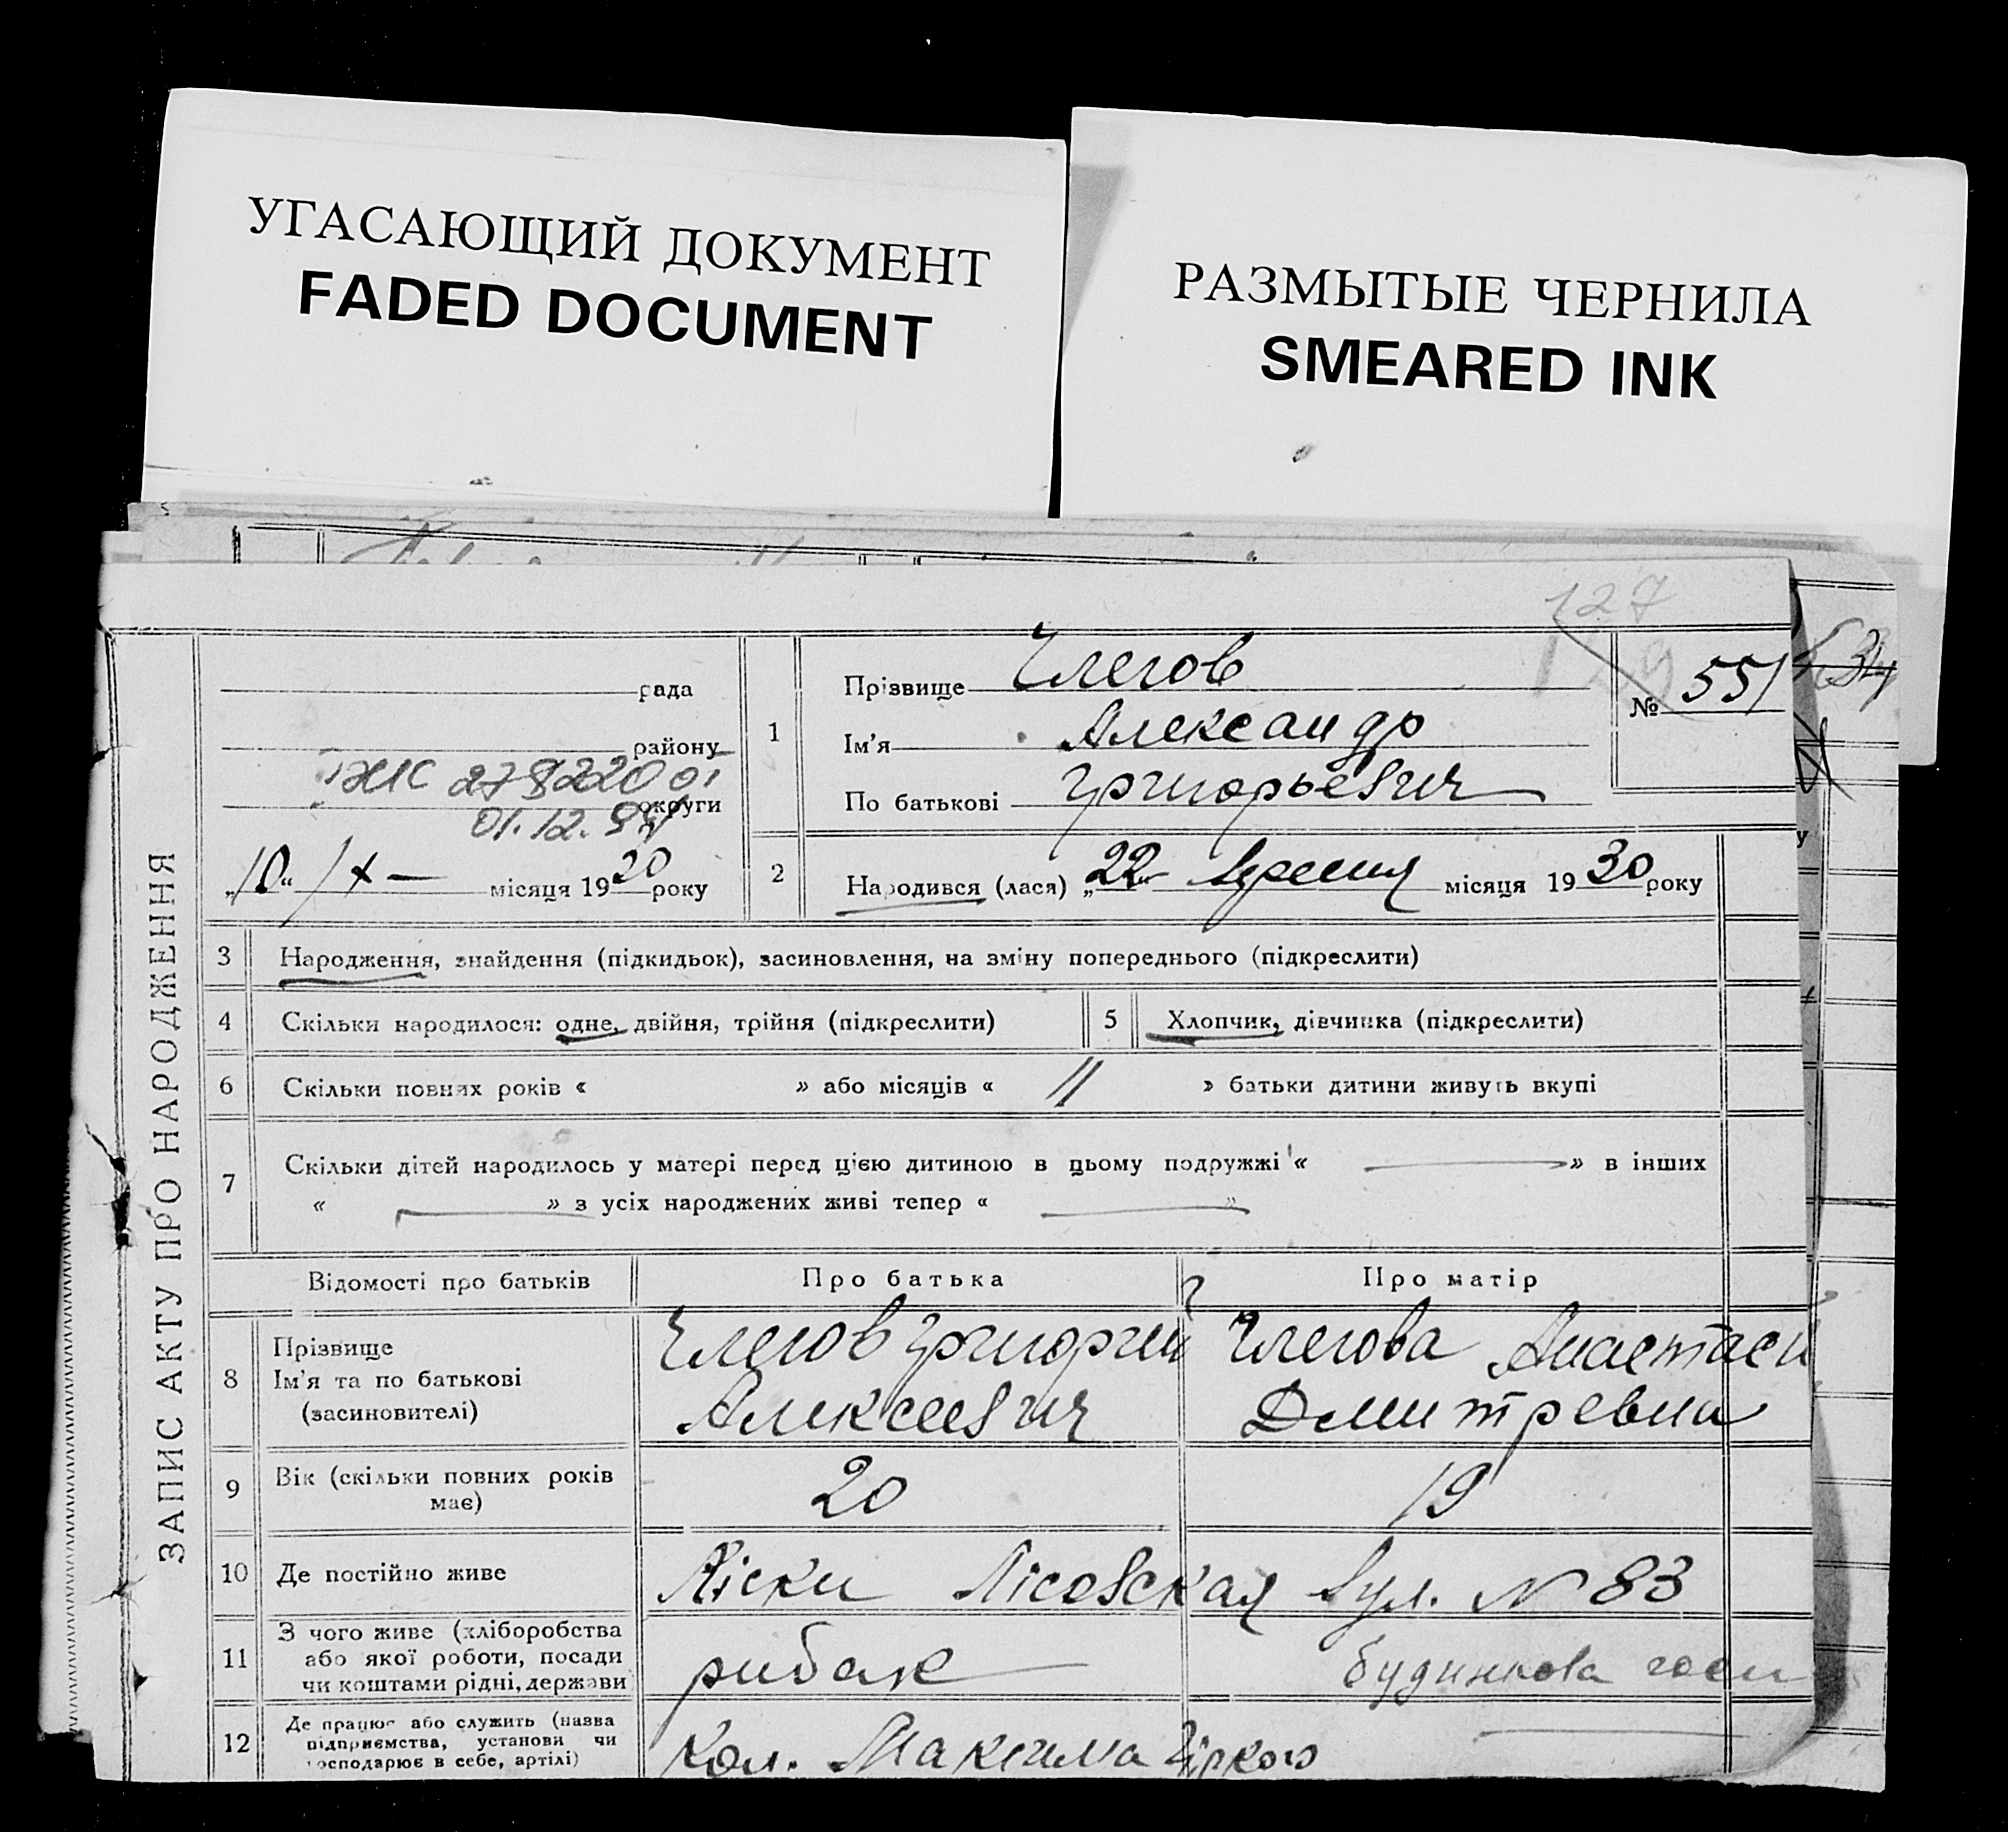 УГАСАЮЩИЙ ДОКУМЕНТ
FADED DOCUMENT
РАЗМЫТЫЕ ЧЕРНИЛА
SMEARED INK
127
ЗАПИС АКТУ ПРО НАРОДЖЕННЯ
рада
району
округи
278220 от
01.12.94
„10“ /X — місяця 1930 року
1
Прізвище Члегов
Ім'я Александр
По батькові Григорьевич
№ 551
2
Народився (лася) „22“ вресня місяця 1930 року
3 Народження, знайдення (підкидьок), засиновлення, на зміну попереднього (підкреслити)
4 Скільки народилося: одне, двійня, трійня (підкреслити)
5 Хлопчик, дівчинка (підкреслити)
6 Скільки повних років « » або місяців « 11 » батьки дитини живуть вкупі
7 Скільки дітей народилось у матері перед цією дитиною в цьому подружжі « — » в інших
« — » з усіх народжених живі тепер « — »
Відомості про батьків Про батька Про матір
8 Прізвище
Ім'я та по батькові
(засиновителі)
Члегов Григорий
Алексеевич
Члегова Анастаси
Дмитревна
9 Вік (скільки повних років
має)
20
19
10 Де постійно живе
Ліски Лісовская вул. № 83
11 З чого живе (хліборобства
або якої роботи, посади
чи коштами рідні, держави
рибак
будинкова госп
12 Де працює або служить (назва
підприємства, установи чи
господарює в себе, артілі)
Кол. Максима Гіркого